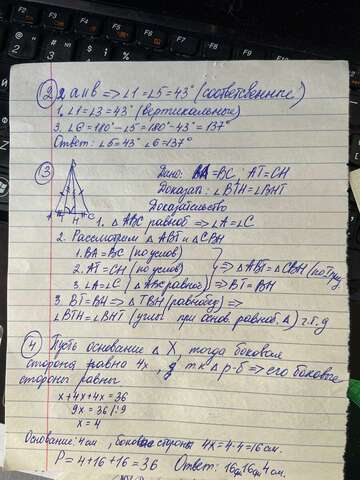 ② 2. a||b => ∠1=∠5=43° (соответственные)
1. ∠1=∠3=43° (вертикальные)
3. ∠6=180°-∠5=180°-43°=137°
Ответ: ∠5=43° ∠6=137°
③ Дано: BA=BC, AT=CH
Доказать: ∠BTH=∠BHT
Доказательство
A T H C
1. △ABC равноб => ∠A=∠C
2. Рассмотрим △ABT и △CBH
1. BA=BC (по услов)
2. AT=CH (по услов) => △ABT=△CBH (по I пр.)
3. ∠A=∠C (△ABC равноб) => BT=BH
3. BT=BH => △TBH (равнобед) =>
∠BTH=∠BHT (углы при основ. равноб. △) ч.т.д
④ Пусть основание △ X, тогда боковая
сторона равна 4x, т.к △ р-б => его боковые
стороны равны
x+4x+4x=36
9x=36/:9
x=4
Основание: 4см, боковые стороны 4x=4·4=16см.
P=4+16+16=36 Ответ: 16см, 16см, 4см.